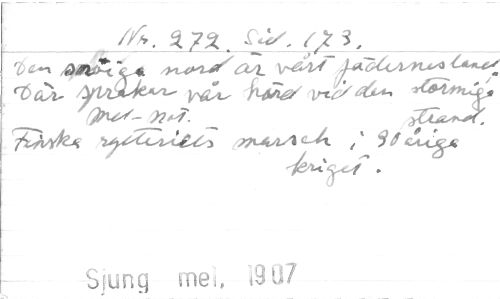 Nr. 272. Sid. 173.
Den snöiga nord är vårt fädernesland,
Där sprakar vår härd vid den stormiga
strand.
Mel-not.
Finska rytteriets marsch i 30åriga
kriget.
Sjung mel, 1907